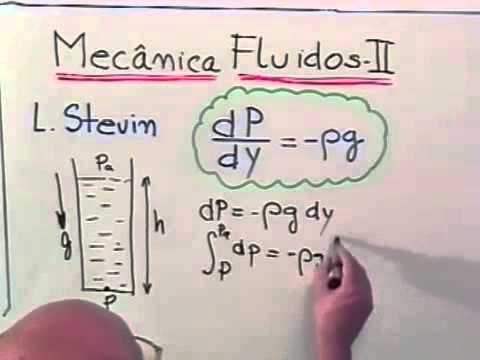 Mecânica Fluidos-II
L. Stevin
dP/dy = -ρg
Pa
g
h
P
dP = -ρg dy
∫_P^Pa dP = -ρg